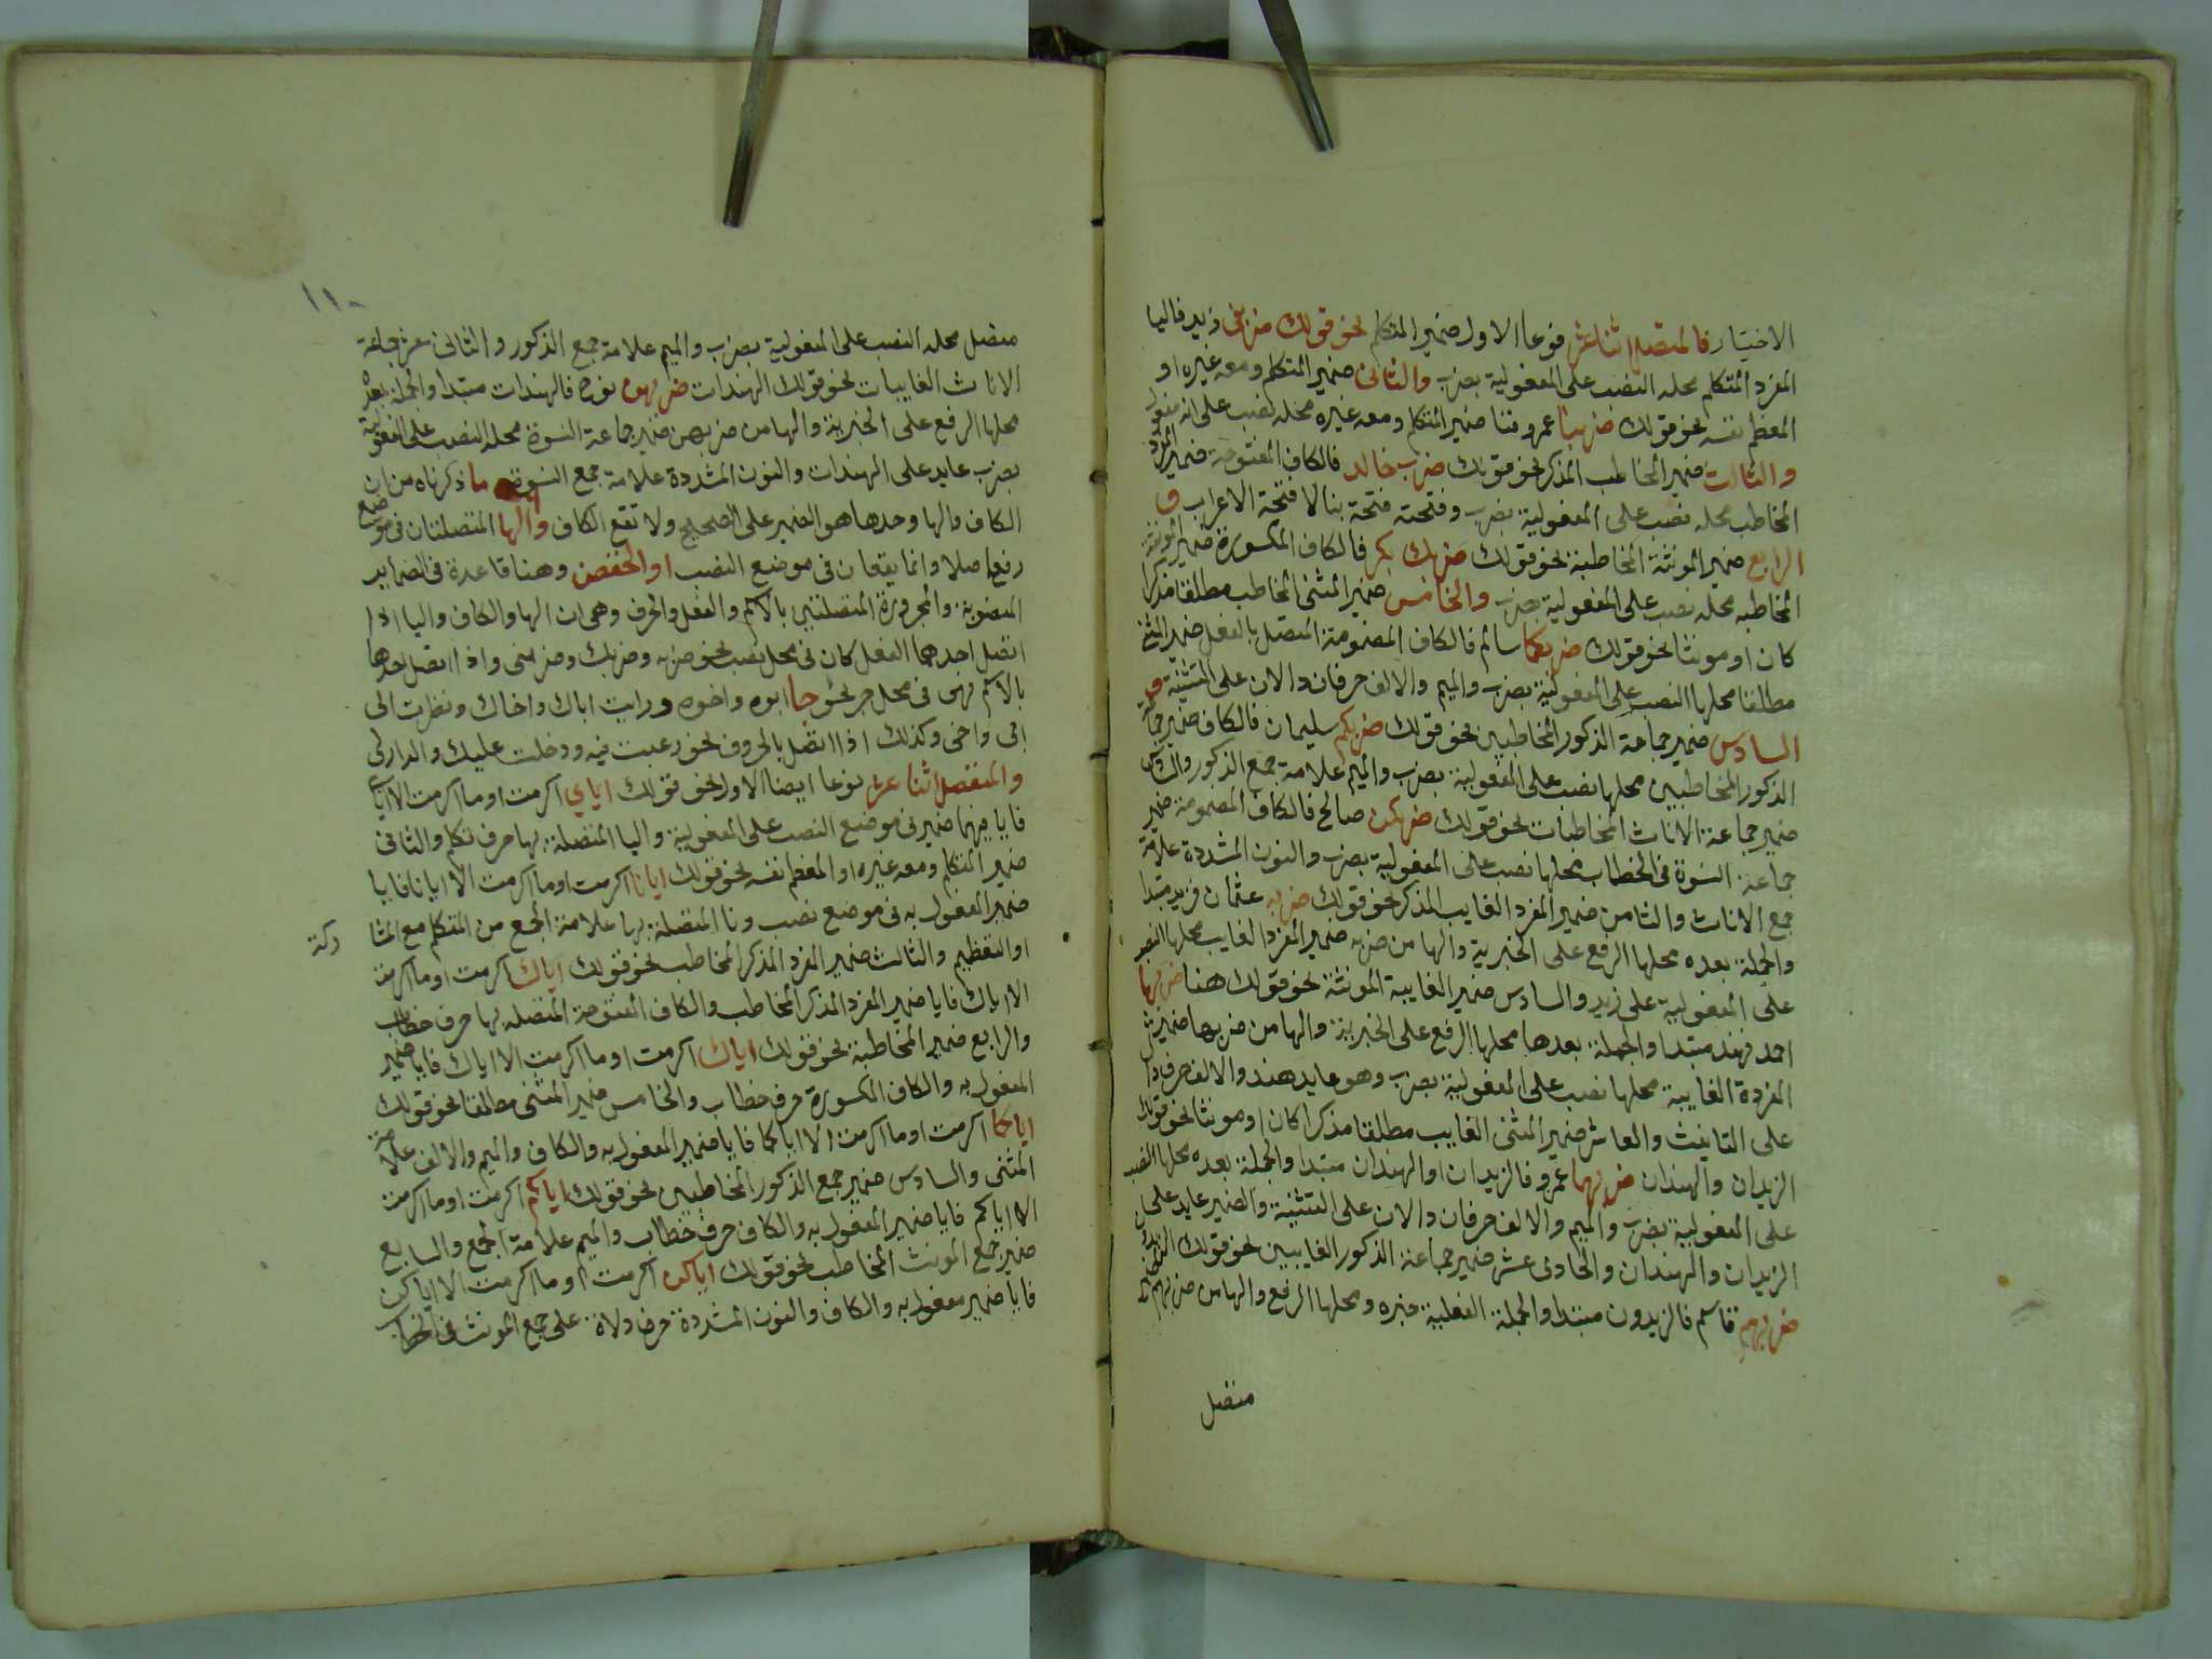 الاختيار فالمتصل اثنا عشر نوعا الاول ضمير المتكلم نحو قولك ضربني زيد فاليا
المفرد المتكلم محله النصب على المفعولية بضرب والثاني ضمير المتكلم ومعه غيره او
المعظم نفسه نحو قولك ضربنا عمرو فنا ضمير المتكلم ومعه غيره محله نصب على انه مفعول
والثالث ضمير المخاطب المذكر نحو قولك ضربك خالد فالكاف المفتوحة ضمير المفرد
المخاطب محله نصب على المفعولية بضرب وفتحته فتحة بنا لا فتحة الاعراب و
الرابع ضمير المونثة المخاطبة نحو قولك ضربك بكر فالكاف المكسورة ضمير المونثة
المخاطبه محله نصب على المفعولية بضرب والخامس ضمير المثنى المخاطب مطلقا مذكرا
كان او مونثا نحو قولك ضربكما سالم فالكاف المضمومة المتصل بالفعل ضمير المثنى
مطلقا محلها النصب على المفعولية بضرب والميم والالف حرفان دالان على التثنية و
السادس ضمير جماعة الذكور المخاطبين نحو قولك ضربكم سليمان فالكاف ضمير جماعة
الذكور المخاطبين محلها نصب على المفعولية بضرب والميم علامة جمع الذكور والسادس
ضمير جماعة الاناث المخاطبات نحو قولك ضربكن صالح فالكاف المضمومة ضمير
جماعة النسوة في الخطاب محلها نصب على المفعولية بضرب والنون المشددة علامة
جمع الاناث والثامن ضمير المفرد الغايب المذكر نحو قولك ضربه عثمان فزيد مبتدا
والجملة بعده محلها الرفع على الخبرية والها من ضربه ضمير المفرد الغايب محلها النصب
على المفعولية على زيد والسادس ضمير الغايبة المونثة نحو قولك هند ضربها
احمد فهند مبتدا والجملة بعدها محلها الرفع على الخبرية والها من ضربها ضمير
المفردة الغايبة محلها نصب على المفعولية بضرب وهو عايد هند والالف حرف دال
على التانيث والعاشر ضمير المثنى الغايب مطلقا مذكرا كان او مونثا نحو قولك
الزيدان والهندان ضربهما عمرو فالزيدان او الهندان مبتدا والجملة بعده محلها النصب
على المفعولية بضرب والميم والالف حرفان دالان على التثنية والضمير عايد على
الزيدان والهندان والحادي عشر ضمير جماعة الذكور الغايبين نحو قولك الزيدون
ضربهم قاسم فالزيدون مبتدا والجملة الفعلية خبره ومحلها الرفع والها من ضربهم
متصل
١١٠
متصل محله النصب على المفعولية بضرب والميم علامة جمع الذكور والثاني عشر جماعة
الاناث الغايبات نحو قولك الهندات ضربهن نوح فالهندات مبتدا والجملة بعده
محلها الرفع على الخبرية والها من ضربهن ضمير جماعة النسوة محله النصب على المفعولية
بضرب عايد على الهندات والنون المشددة علامة جمع النسوة ما ذكرناه من ان
الكاف والها وحدها هو الضمير على الصحيح ولا تقع الكاف والها المتصلتان في موضع
رفع اصلا وانما يقعان في موضع النصب او الخفض وهنا قاعدة في الضماير
المنصوبة والمجرورة المتصلتين بالاسم والفعل والحرف وهي ان الها والكاف واليا اذا
اتصل احدهما الفعل كان في محل نصب نحو ضربه وضربك وضربني واذا اتصل احدها
بالاسم فهي في محل جر نحو جا ابوه واخوه ورايت اباك واخاك ونظرت الى
ابي واخي وكذلك اذا اتصل بالحروف نحو رغبت فيه ودخلت عليك والدار لي
والمنفصل اثنا عشر نوعا ايضا الاول نحو قولك اياي اكرمت او ما اكرمت الا اياي
فايا فيهما ضمير في موضع النصب على المفعولية واليا المتصلة بها حرف تكلم والثاني
ضمير المتكلم ومعه غيره او المعظم نفسه نحو قولك ايانا اكرمت او ما اكرمت الا ايانا فايا
ضمير المفعول به في موضع نصب ونا المتصلة بها علامة الجمع من المتكلم مع المشا
ركة
او التعظيم والثالث ضمير المفرد المذكر المخاطب نحو قولك اياك اكرمت او ما اكرمت
الا اياك فايا ضمير المفرد المذكر المخاطب والكاف المفتوحة المتصله بها حرف خطاب
والرابع ضمير المخاطبة نحو قولك اياك اكرمت او ما اكرمت الا اياك فايا ضمير
المفعول به والكاف المكسورة حرف خطاب والخامس ضمير المثنى مطلقا نحو قولك
اياكما اكرمت او ما اكرمت الا اياكما فايا ضمير المفعول به والكاف والميم والالف علامة
المثنى والسادس ضمير جمع الذكور المخاطبين نحو قولك اياكم اكرمت او ما اكرمت
الا اياكم فايا ضمير المفعول به والكاف حرف خطاب والميم علامة الجمع والسابع
ضمير جمع المونث المخاطب نحو قولك اياكن اكرمت او ما اكرمت الا اياكن
فايا ضمير مفعول به والكاف والنون المشددة حرف دلاة على جمع المونث في الخطاب